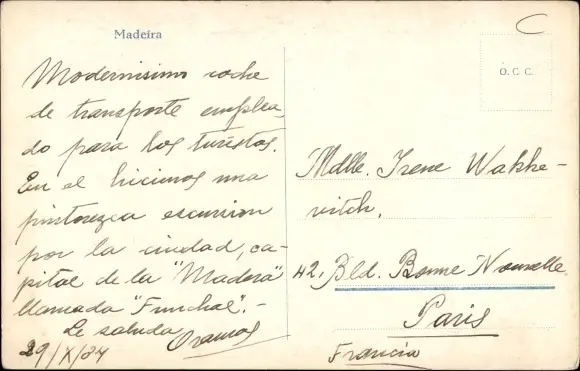 Madeira
Modernisimo coche
de transporte emplea-
do para los turistas.
En el hicimos una
pintorezca escursion
por la ciudad, ca-
pital de la "Madera"
llamada "Funchal".-
Le saluda
29/X/34
O. C. C.
Mdlle. Irene Wakke-
vitch.
42, Bld. Bonne Nouvelle
Paris
Francia